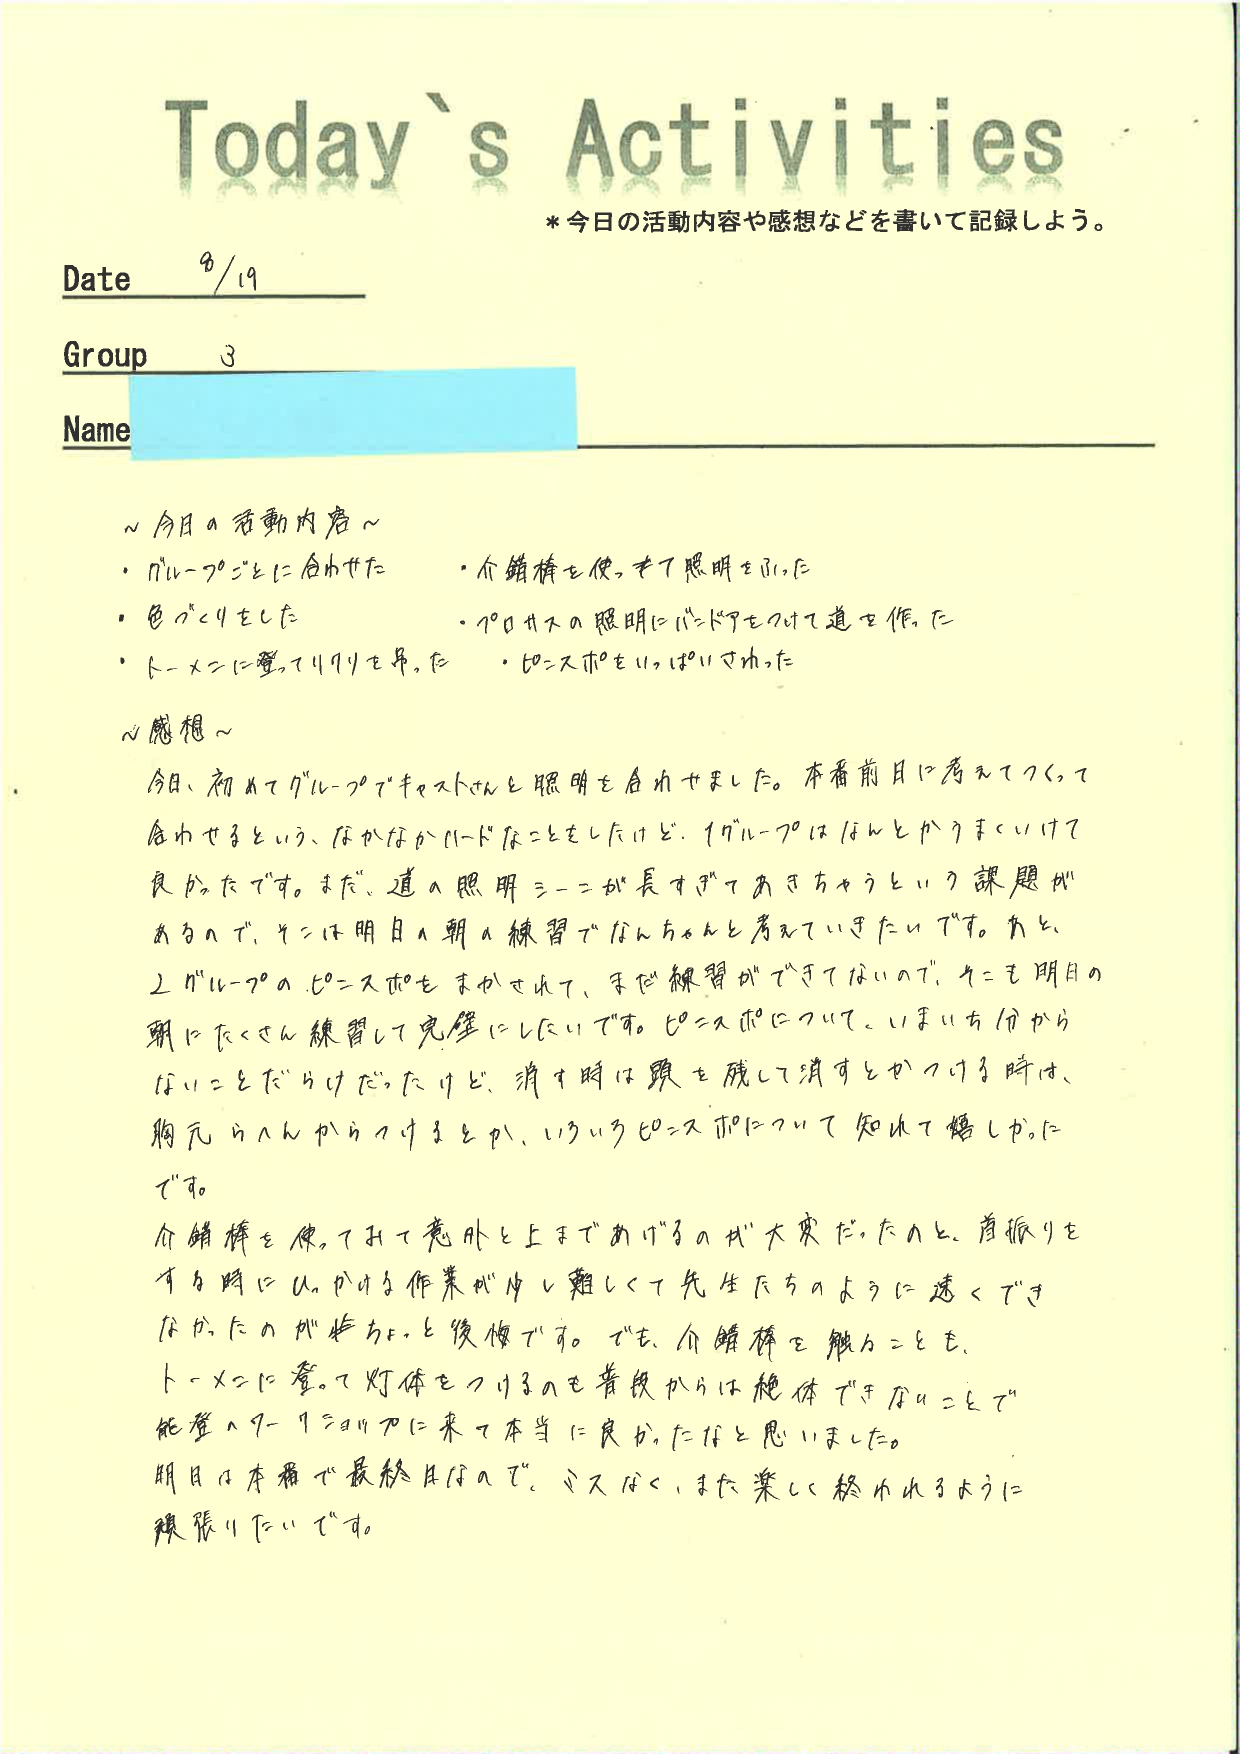 Today`s Activities
＊今日の活動内容や感想などを書いて記録しよう。
Date 8/19
Group 3
Name
～今日の活動内容～
・グループごとに合わせた ・介錯棒を使って照明をふった
・色づくりをした ・プロサスの照明にバンドアをつけて道を作った
・トーメンに登ってリクリを吊った ・ピンスポをいっぱいさわった
～感想～
今日、初めてグループでキャストさんと照明を合わせました。本番前日に考えてつくって
合わせるという、なかなかハードなことをしたけど、1グループはなんとかうまくいけて
良かったです。まだ、道の照明シーンが長すぎてあきちゃうという課題が
あるので、そこは明日の朝の練習でなんちゃんと考えていきたいです。あと、
2グループのピンスポをまかされて、まだ練習ができてないので、そこも明日の
朝にたくさん練習して完璧にしたいです。ピンスポについて、いまいち分から
ないことだらけだったけど、消す時は頭を残して消すとかつける時は、
胸元らへんからつけるとか、いろいろピンスポについて知れて嬉しかった
です。
介錯棒を使ってみて意外と上まであげるのが大変だったのと、首振りを
する時にひっかける作業が少し難しくて先生たちのように速くでき
なかったのがちょっと後悔です。でも、介錯棒を触ることも、
トーメンに登って灯体をつけるのも普段からは絶体できないことで
能登へワークショップに来て本当に良かったなと思いました。
明日は本番で最終日なので、ミスなく、また楽しく終われるように
頑張りたいです。